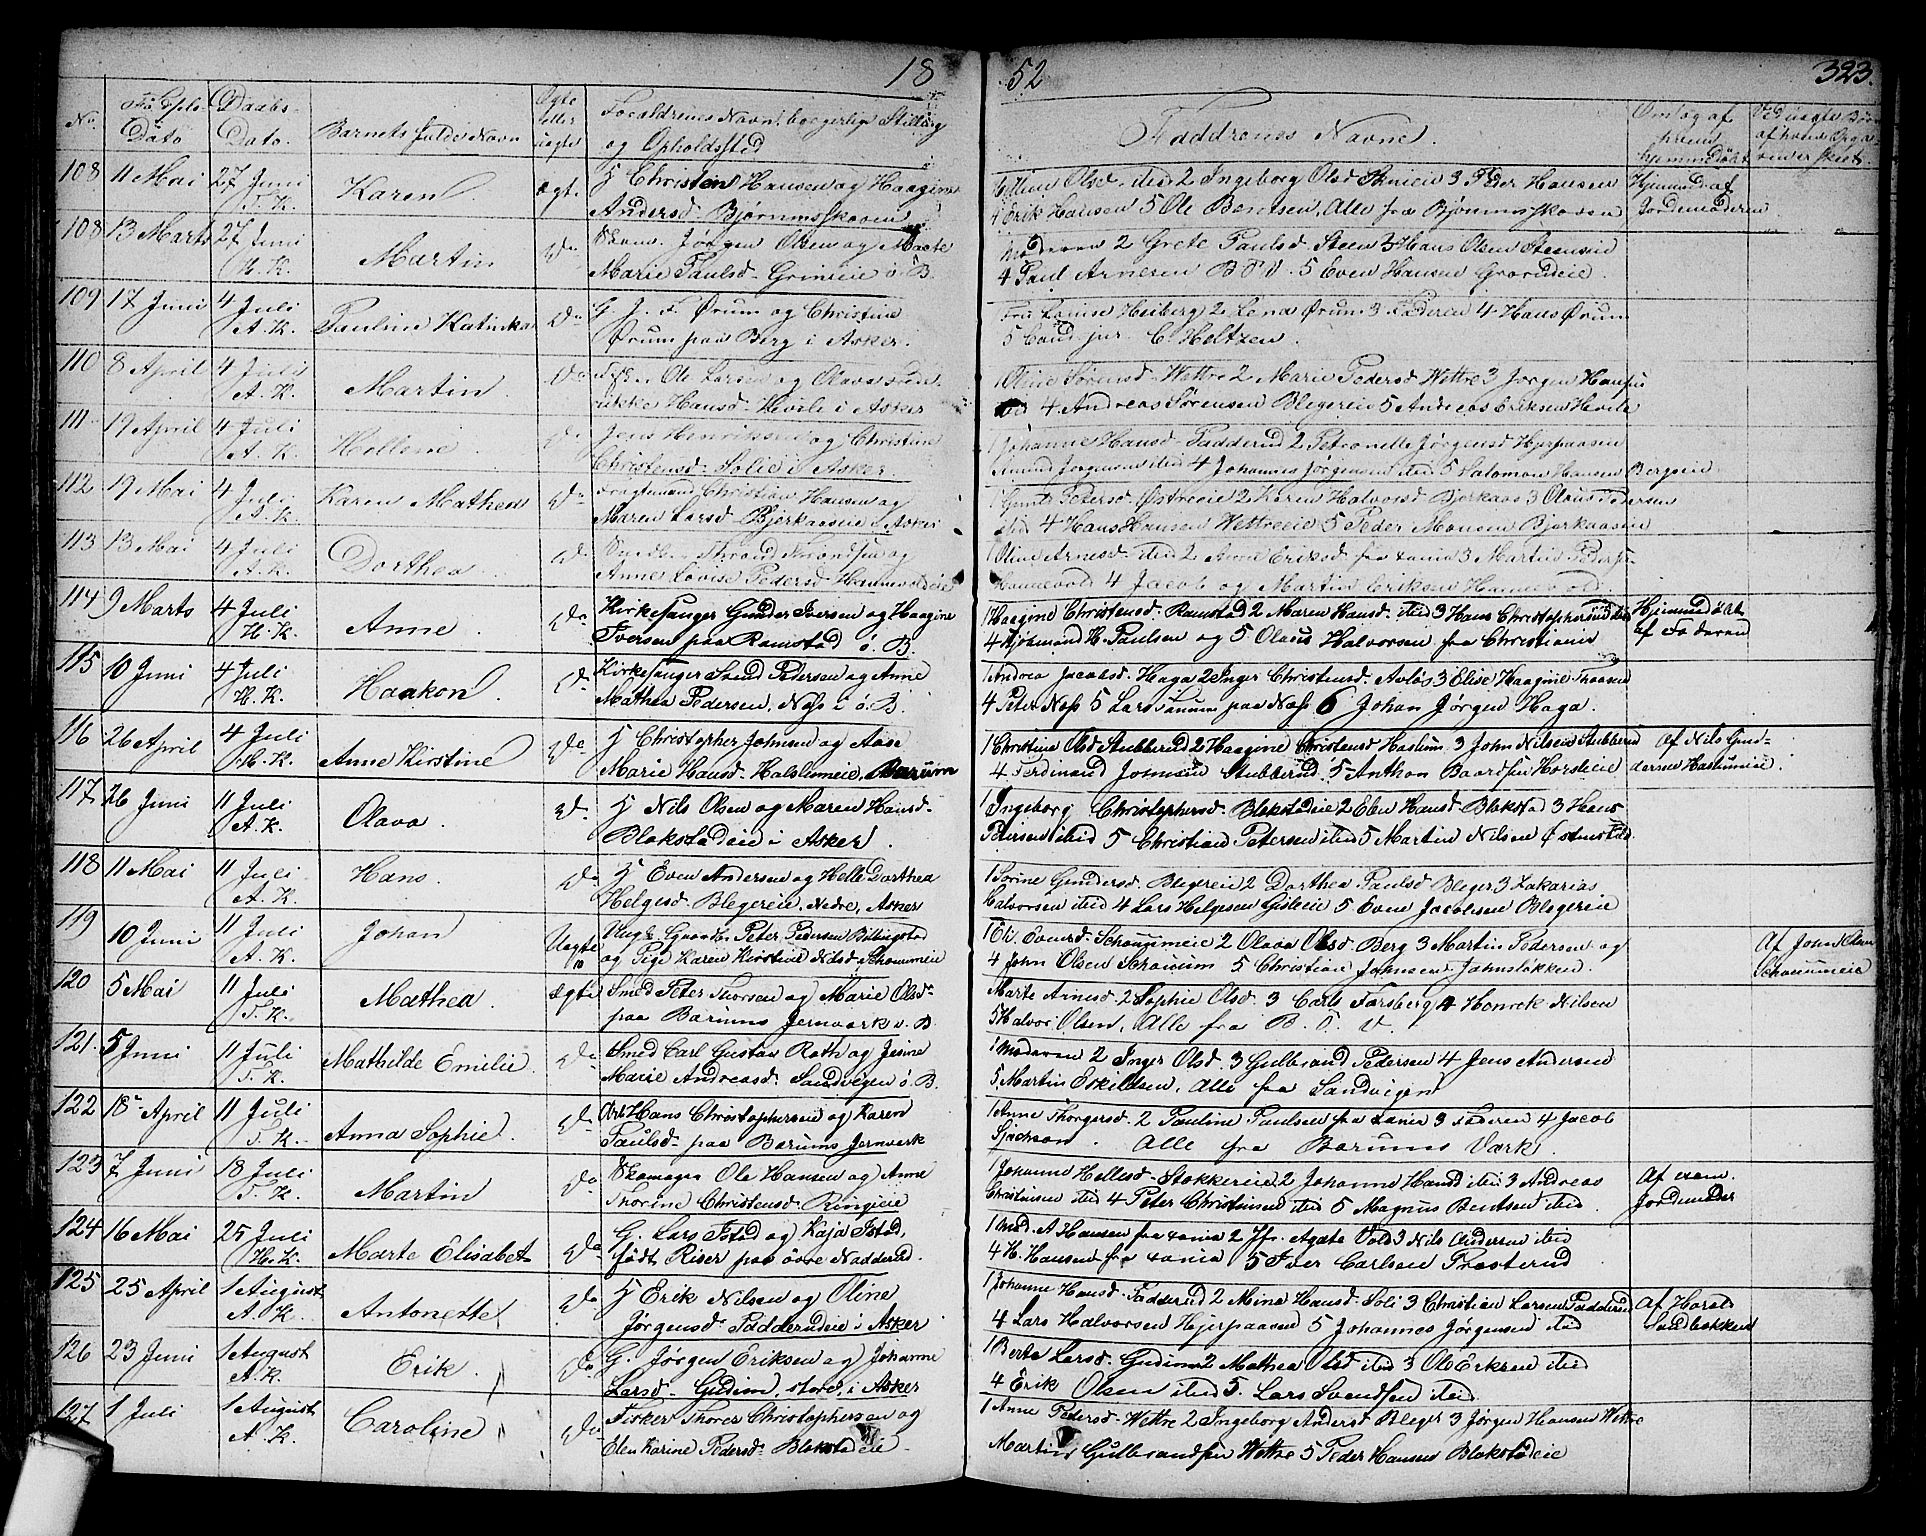 18
52
323.
No.
Fødsels-
Dato
Daabs-
Dato.
Barnets fulde Navn
Ægte
eller
uægte
Forældrenes Navn, borgerlige Stilling
og Opholdssted
Faddrenes Navne.
Om og af
hvem
hjemmedøbt
108 11 Mai 27 Juni Karen. ægte G Christen Hansen og Haagine
T. K. Andersd- Bjørumsskoven
Olsd- ibid 2 Ingeborg Olsd 3 Peder Hansen Hjemmed. af
4 Erik Hansen 5 Ole Bentsen, Alle fra Bjørumsskoven Jordemoderen
108 13 Marts 27 Juni Martin Do Skom. Jørgen Olsen og Marte
H. K. Marie Paulsd- Grinieie ø. B.
Moderen 2 Grete Paulsd Steen 3 Hans Olsen Steenseie
4 Paul Arnesen B. V. 5 Even Hansen
109 17 Juni 4 Juli Pauline Katinka Do G J. F. Ørum og Christine
A. K. Ørum paa Berg i Asker.
Fru Louise Heiberg 2 Lena Ørum 3 Faderen 4 Hans Ørum
5 Cand jur. C. Heltzen.
110 8 April 4 Juli Martin. Do Ole Larsen og Olava
A. K. Hansd- Hvile i Asker
1 Oline Sørensd- Wettre 2 Marie Pedersd Wettre 3 Jørgen Hansen
ibid 4 Andreas Sørensen Blegereie 5 Andreas Eriksen Hvile
111 19 April 4 Juli Hellene. Do Jens Henriksen og Christine
A. K. Christensd- Solie i Asker
1 Johanne Hansd- Fadderud 2 Petronelle Jørgensd Hjerpaasen
Amund Jørgensen ibid 4 Johannes Jørgensen ibid 5 Salomon Hansen Bergseie
112 19 Mai 4 Juli Karen Mathea Do Fragtemand Christian Hansen og
A. K. Maren Larsd- Bjerkaaseie i Asker
1 Pedersd- Østreeie 2 Karen Halvorsd Bjerkaas 3 Olaus Pedersen
ibid 4 Hans Hansen Wettreeie 5 Peder Monsen Bjerkaasen
113 13 Mai 4 Juli Dorthea. Do
A. K. Anne Lovise Pedersd-
1 Oline Arnesd- ibid 2 Anne Eriksd- fra samme 3 Martin Peders.
4 Jacob og Martin Eriksen
114 9 Marts 4 Juli Anne. Do Kirkesanger Gunder Iversen og Haagine
H. K. Iversen paa Ramstad ø. B.
1 Haagine Christensd- Ramstad 2 Maren Hansd- ibid 3 Hans Christophersen ibid Hjemmedøbt
4 HjØmand H. Paulsen og 5 Olaus Halvorsen fra Christiania af Faderen
115 10 Juni 4 Juli Haakon. Do Kirkesanger Svend Pedersen og Anne
H. K. Mathea Pedersen, Næss i ø. B.
1 Andrea Jacobsd- Haga 2 Inger Christensd- Avløs 3 Elise Haagine Thoresen
4 Peter Næss 5 Lars paa Næss 6 Johan Jørgen Haga.
116 26 April 4 Juli Anne Kirstine Do G Christopher Johnsen og Aase
H. K. Marie Hansd- Haslumeie, Bærum
1 Christine Olsd Stubberud 2 Haagine Christensd Haslum 3 John Nilsen Stubberud Af Nils Gund-
4 Ferdinand Johnsen Stubberud 5 Anthon Baardsen Horsleie dersen Haslumeie.
117 26 Juni 11 Juli Olava. Do G Nils Olsen og Maren Hansd-
A. K. Blakstadeie i Asker.
1 Ingeborg Christophersd- Blakstadeie 2 Elen Hansd- Blakstad 3 Hans
Petersen ibid 5 Christian Petersen ibid 5 Martin Nilsen
118 11 Mai 11 Juli Hans. Do G Even Andersen og Helle Dorthea
A. K. Helgesd- Blegereie, Nedre, Asker
1 Sorine Gundersd- Blegereie 2 Dorthea Paulsd Bleger 3 Zakarias
Halvorsen ibid 4 Lars Helgesen Gisleie 5 Even Jacobsen Blegereie
119 10 Juni 11 Juli Johan Uægte Ungk. Peter Pedersen Billingstad
A. K. 10 og Pige Karen Kirstine Nilsd Schoummeie
1 Eli Evensd- Schoummeie 2 Olava Olsd Berg 3 Martin Pedersen og Af John Olsen
4 John Olsen Schoum 5 Christian Johnsen Jahnsløkken. Schoummeie
120 5 Mai 11 Juli Mathea. ægte Smed Peter Thorsen og Marie Olsd-
T. K. paa Bærums Jernværk v. B.
Marte Arnesd- 2 Sophie Olsd- 3 Carls Forsberg 4 Henrik Nilsen
5 Halvor Olsen, Alle fra B. V.
121. 5 Juni 11 Juli Mathilde Emilie. Do Smed Carl Gustav Roth og Jesine
T. K. Marie Andreasd- Sandvigen ø. B.
1 Moderen 2 Inger Olsd- 3 Gulbrand Pedersen 4 Jens Andersen
5 Martin Eskildsen, Alle fra Sandvigen
122 18 April 11 Juli Anna Sophie. Do Arb Hans Christophersen og Karen
T. K. Paulsd- paa Bærums Jernværk
1 Anne Thorgersd- 2 Pauline Paulsen fra samme 3 Faderen 4 Jacob
. Alle fra Bærums Værk.
123 7 Juni 18 Juli Martin Do Skomager Ole Hansen og Anne
T. K. Thorine Christensd- Ringieie
1 Johanne Hellesd- Stokkereie 2 Johanne Hansd ibid 3 Andreas Af exam.
Christensen ibid 4 Peter Christensen ibid 5 Magnus Bentsen ibid. Jordemoder
124 16 Mai 25 Juli Marte Elisabet Do G. Lars Istad og Kaja Istad,
H. K. født Riser paa øvre Nadderud.
1 Mad. A Hansen fra samme 2 Jfr. Agate Vold 3 Nils Andersen ibid
4 H. Hansen fra samme 5 Iver Carlsen Presterud
125 25 April 1 August Antonette Do G Erik Nilsen og Oline
A. K. Jørgensd- Fadderudeie i Asker
1 Johanne Hansd- Fadderud 2 Mina Hansd- Soli 3 Christian Larsen Fadderud Af Harald
4 Lars Halvorsen Hjerpaasen 5 Johannes Jørgensen ibid Sandbakken
126 23 Juni 1 August Erik. Do G. Jørgen Eriksen og Johanne
A. K. Larsd- Gudim, store, i Asker
1 Berte Larsd- Gudim 2 Mathea Olsd ibid 3 Ole Eriksen ibid
4 Erik Olsen ibid 5. Lars Svendsen ibid.
127 1 Juli 1 August Caroline Do Fisker Thorer Christophersen og
A. K. Elen Karine Pedersd- Blakstadeie
1 Anne Pedersd- Wettre 2 Ingeborg Andersd Bleger 3 Jørgen Hansen Wettre
Martin Gulbrandsen Wettre 5 Peder Hansen Blakstadeie